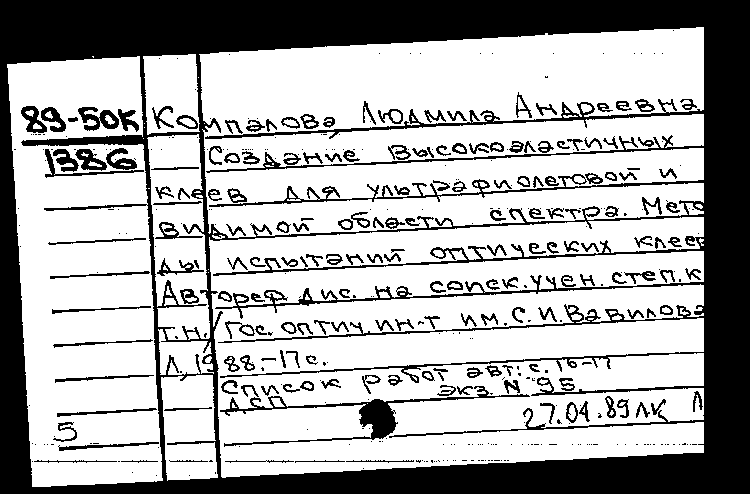 89-50К Компалова Людмила Андреевна
1386 Создание высокоэластичных
клеев для ультрафиолетовой и
видимой области спектра. Мето
ды испытаний оптических клеев
Автореф. дис. на соиск. учен. степ. к
т.н./Гос. оптич. ин-т им. С. И. Вавилова
Л, 1988.-17с.
Список работ авт: с. 16-17
ДСП экз N 95.
27.04.89 ЛК Л
5